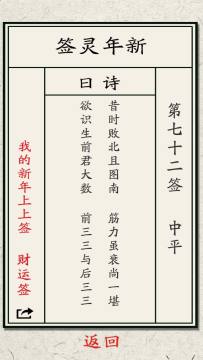 新年灵签
诗曰
第七十二签 中平
昔时败北且图南 筋力虽衰尚一堪
欲识生前君大数 前三三与后三三
我的新年上上签 财运签
返回